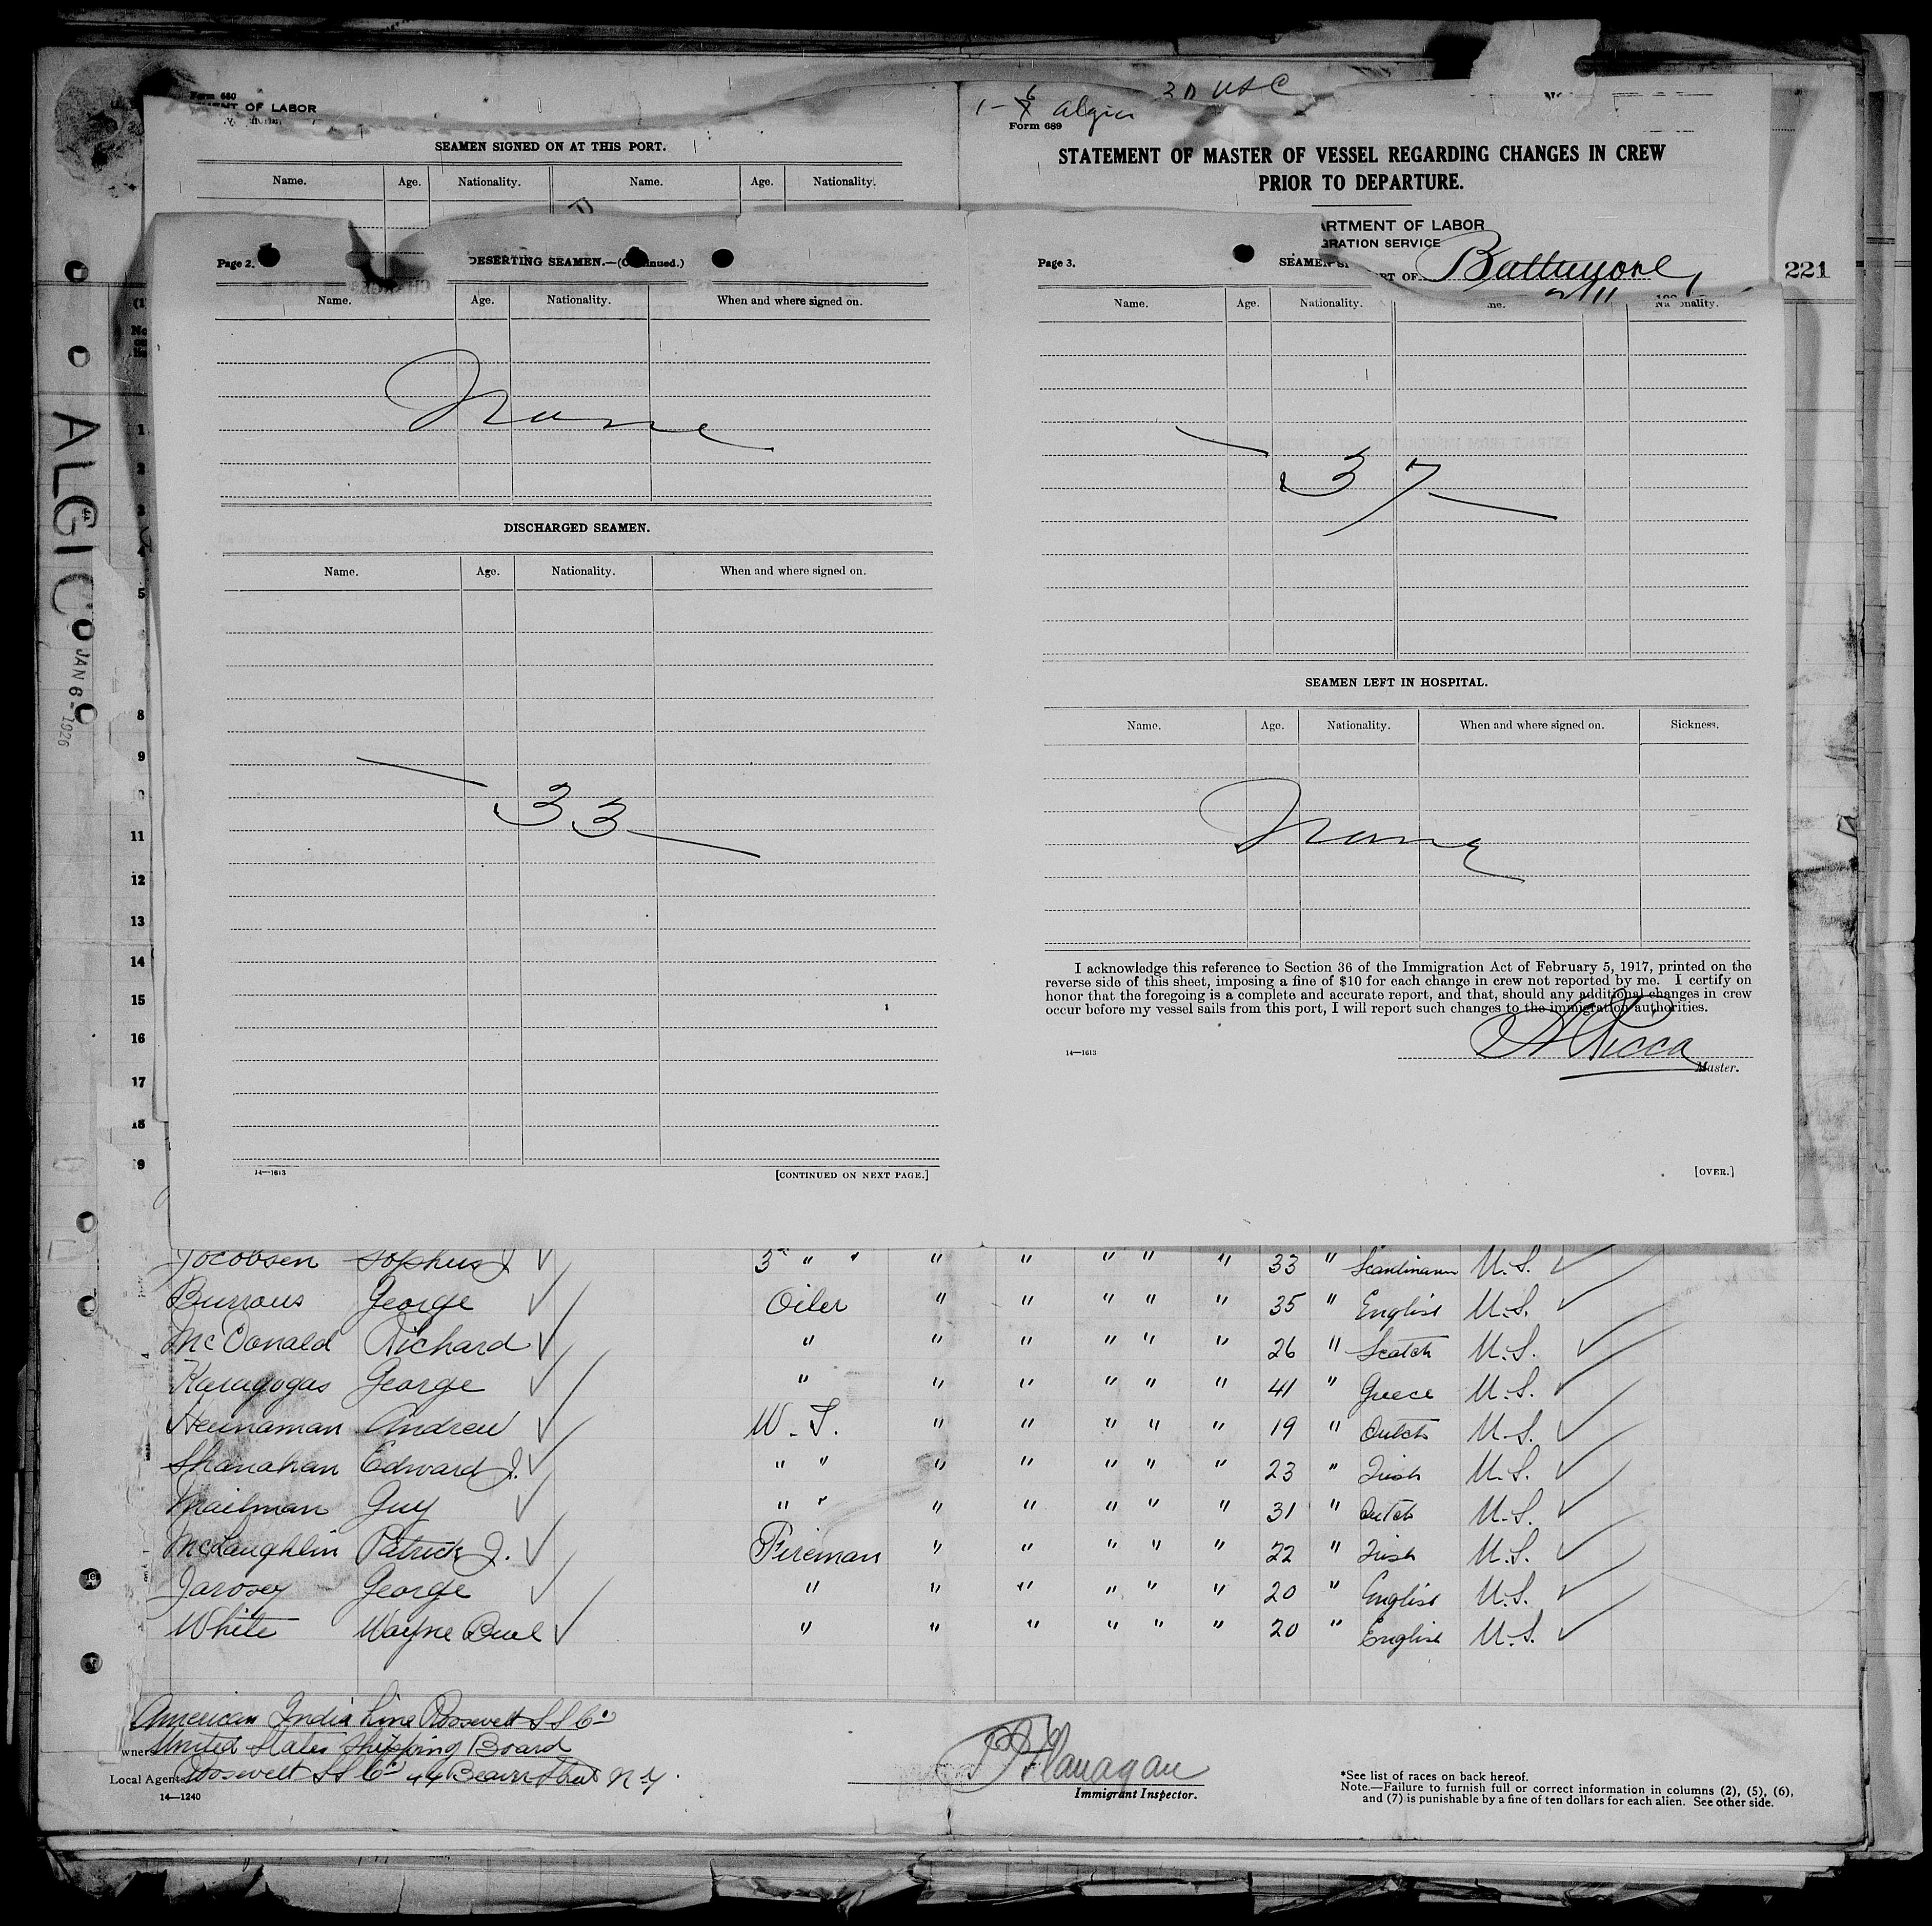 Form 680
OF LABOR
SEAMEN SIGNED ON AT THIS PORT.
Name. Age. Nationality. Name. Age. Nationality.
Form 689
STATEMENT OF MASTER OF VESSEL REGARDING CHANGES IN CREW
PRIOR TO DEPARTURE.
ARTMENT OF LABOR
GRATION SERVICE
RT OF Baltimore,
221
ALGIC
JAN 6 - 1926
Page 2.
DESERTING SEAMEN.—(Continued.)
Name. Age. Nationality. When and where signed on.
None
DISCHARGED SEAMEN.
Name. Age. Nationality. When and where signed on.
33
14—1613
[CONTINUED ON NEXT PAGE.]
Page 3.
SEAMEN
Name. Age. Nationality.
37
SEAMEN LEFT IN HOSPITAL.
Name. Age. Nationality. When and where signed on. Sickness.
None
I acknowledge this reference to Section 36 of the Immigration Act of February 5, 1917, printed on the
reverse side of this sheet, imposing a fine of $10 for each change in crew not reported by me. I certify on
honor that the foregoing is a complete and accurate report, and that, should any additional changes in crew
occur before my vessel sails from this port, I will report such changes to the immigration authorities.
14—1613
Master.
[OVER.]
1
2
3
4
5
8
9
11
12
13
14
15
16
17
18
19
Jocobsen Sophus J 3 " " " " " " " 33 " U.S.
Burrous George Oiler " " " " " 35 " English U.S.
McDonald Richard " " " " " " 26 " Scotch U.S.
Karagogas George " " " " " " 41 " Greece U.S.
Heunaman Andrew W. T. " " " " " 19 " Dutch U.S.
Shanahan Edward J. " " " " " " " 23 " Irish U.S.
Mailman Guy " " " " " " " 31 " Dutch U.S.
McLaughlin Patrick J. Fireman " " " " " 22 " Irish U.S.
Jarosey George " " " " " " 20 " English U.S.
White Wayne Buel " " " " " " 20 " English U.S.
American India Line Roosevelt S S Co
owners United States Shipping Board
Local Agents Roosevelt SS Co 44 Beaver Street N.Y.
14—1240
Flanagan
Immigrant Inspector.
*See list of races on back hereof.
Note.—Failure to furnish full or correct information in columns (2), (5), (6),
and (7) is punishable by a fine of ten dollars for each alien. See other side.